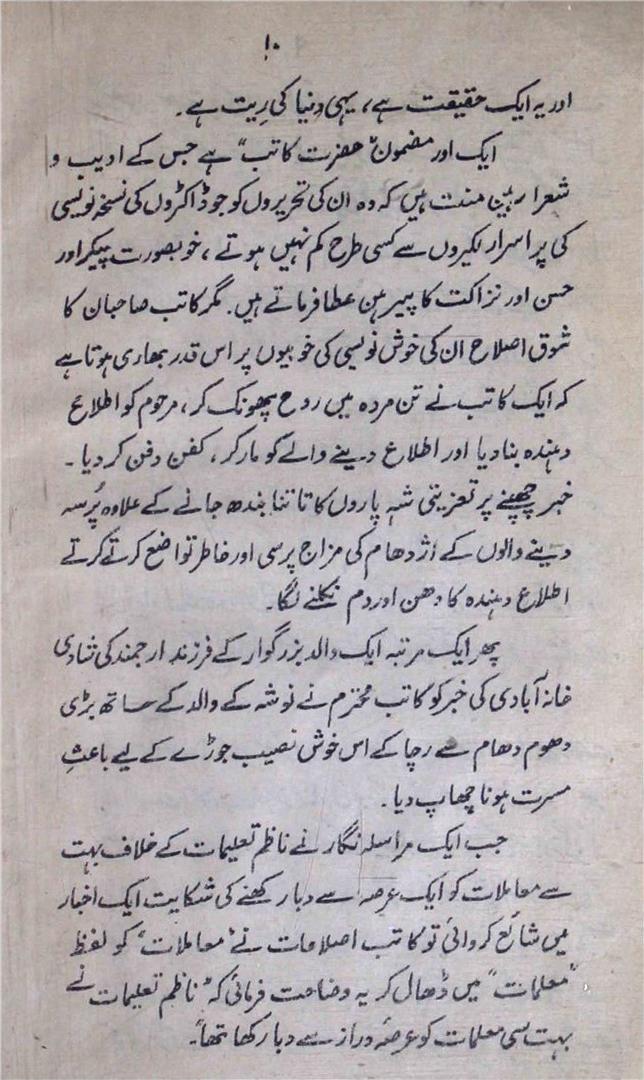 ۱۰
اور یہ ایک حقیقت ہے، یہی دنیا کی رِیت ہے۔
ایک اور مضمون "حضرت کاتب" ہے جس کے ادیب و
شعرا رہین منت ہیں کہ وہ ان کی تحریروں کو جو ڈاکٹروں کی نسخہ نویسی
کی پر اسرار لکیروں سے کسی طرح کم نہیں ہوتے، خوبصورت پیکر اور
حسن اور نزاکت کا پیرہن عطا فرماتے ہیں۔ مگر کاتب صاحبان کا
شوق اصلاح ان کی خوش نویسی کی خوبیوں پر اس قدر بھاری ہوتا ہے
کہ ایک کاتب نے تن مردہ میں روح پھونک کر، مرحوم کو اطلاع
دہندہ بنا دیا اور اطلاع دینے والے کو مار کر، کفن دفن کر دیا۔
خبر چھپنے پر تعزیتی شہ پاروں کا تانتا بندھ جانے کے علاوہ پُرسہ
دینے والوں کے اژدھام کی مزاج پرسی اور خاطر تواضع کرتے کرتے
اطلاع دہندہ کا دھن اور دم نکلنے لگا۔
پھر ایک مرتبہ ایک والد بزرگوار کے فرزند ارجمند کی شادی
خانہ آبادی کی خبر کو کاتب محترم نے نوشہ کے والد کے ساتھ بڑی
دھوم دھام سے رچا کے اس خوش نصیب جوڑے کے لیے باعثِ
مسرت ہونا چھاپ دیا۔
جب ایک مراسلہ نگار نے ناظم تعلیمات کے خلاف بہت
سے معاملات کو ایک عرصہ سے دبا رکھنے کی شکایت ایک اخبار
میں شائع کروائی تو کاتب اصلاحات نے "معاملات" کو لفظ
"معلمات" میں ڈھال کر یہ وضاحت فرمائی کہ "ناظم تعلیمات نے
بہت سی معلمات کو عرصۂ دراز سے دبا رکھا تھا"۔